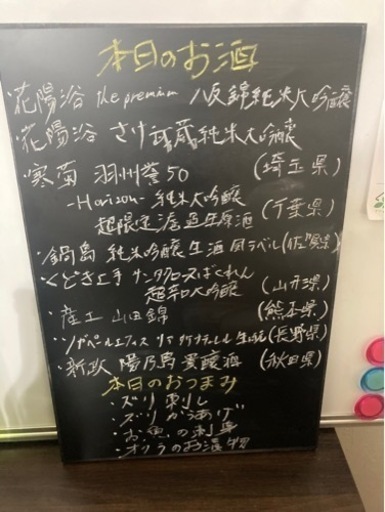 本日のお酒
・花陽浴 the premium 八反錦純米大吟醸
・花陽浴 さけ武蔵純米大吟醸
(埼玉県)
・寒菊 羽州誉50
-Horizon- 純米大吟醸
超限定 生原酒
(千葉県)
・鍋島 純米吟醸生酒 ラベル(佐賀県)
・くどき上手 サンタクロースばくれん
超辛大吟醸
(山形県)
・産土 山田錦
(熊本県)
・ソガペールエフィス
(長野県)
・新政 陽乃鳥 貴醸酒
(秋田県)
本日のおつまみ
・ズリ刺し
・ズリからあげ
・お魚の刺身
・オクラのお漬物